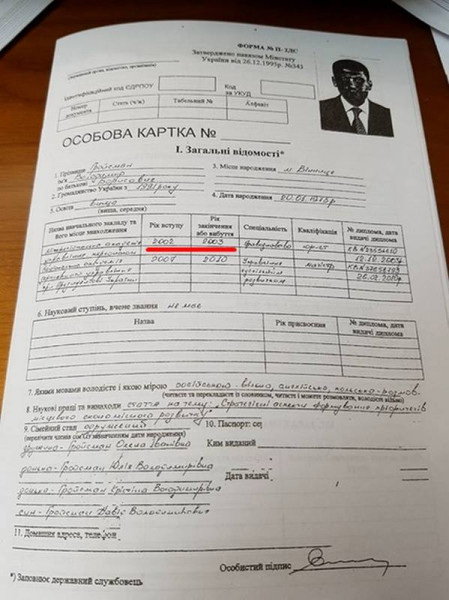 ФОРМА № П- 2ДС
Затверджено наказом Мінстату
України від 26.12.1995р. №343
Ідентифікаційний код ЄДРПОУ
Код
за УКУД
Номер документа
Стать (ч/ж)
Табельний №
Алфавіт
ОСОБОВА КАРТКА №
І. Загальні відомості*
1. Прізвище Гройсман
Ім'я Володимир
по батькові Борисович
2. Громадянство України з 1991 року
3. Місце народження м. Вінниця
4. Дата народження 20.01.1978р.
5. Освіта вища
(вища, середня)
Назва навчального закладу та його місце знаходження
Рік вступу
Рік закінчення або вибуття
Спеціальність
Кваліфікація
№ диплома, дата видачі диплома
Міжрегіональна академія управління персоналом
2002
2003
юрист
2010
Управління
магістр
6. Науковий ступінь, вчене звання не має
Назва
Рік присвоєння
№ диплома, дата видачі диплома
7. Якими мовами володієте і якою мірою
(читаєте та перекладаєте зі словником, читаєте і можете розмовляти, володієте вільно)
8. Наукові праці та винаходи стаття на тему: "Стратегічні аспекти формування пріоритетів
місцевого економічного розвитку"
9. Сімейний стан одружений
(перелічити членів сім'ї із зазначенням дати народження)
10. Паспорт: сер
дружина - Гройсман Олена
Ким виданий
донька - Гройсман Юлія Володимирівна
донька - Гройсман Крістіна Володимирівна
Дата видачі
син - Гройсман Давід Володимирович
11. Домашня адреса, телефон
Особистий підпис
*) Заповнює державний службовець